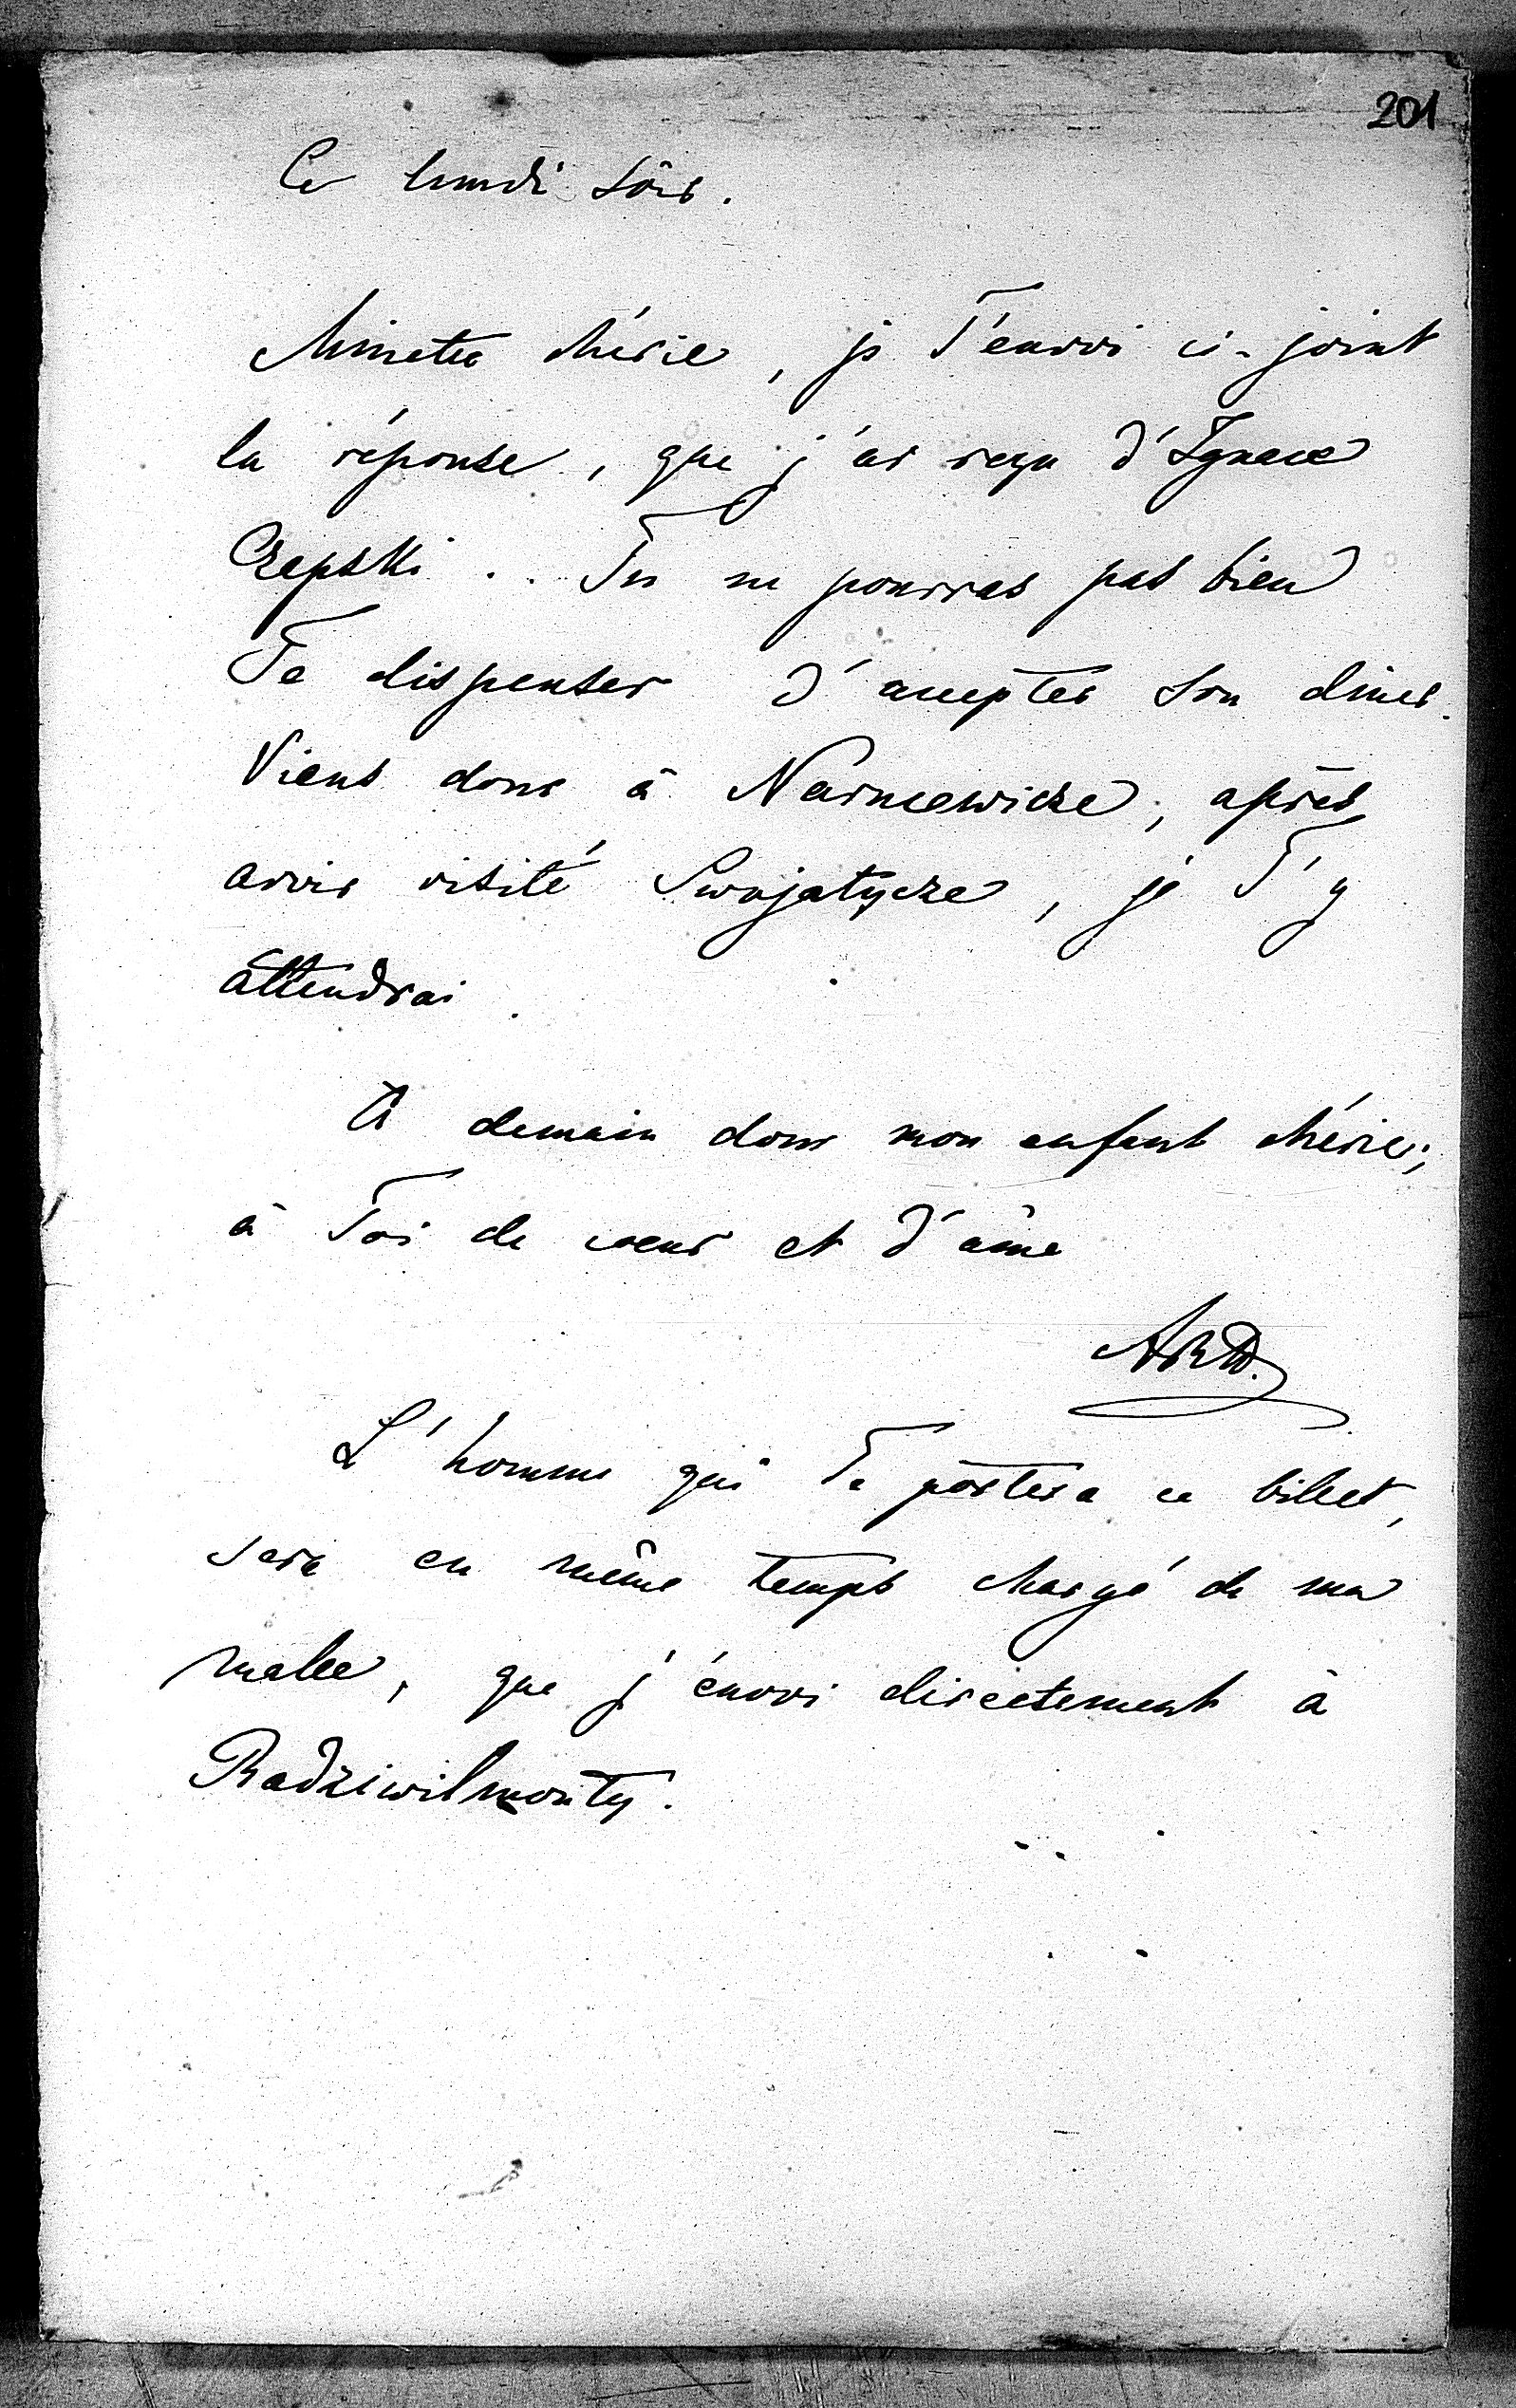 201
Ce lundi soir.
Minette chérie, je T'envoi ci-joint
la réponse, que j'ai reçu d'Ignace
Czepski .. Tu ne pourras pas bien
Te dispenser d'accepter son diner.
Viens donc à Narucewicze, après
avoir visité Swojatycze, je T'y
attendrai.
A demain donc mon enfant chérie;
à Toi de coeur et d'âme
L'homme qui Te portera ce billet,
sera en même temps chargé de ma
malle, que j'envoi directement à
Radziwilmonty.